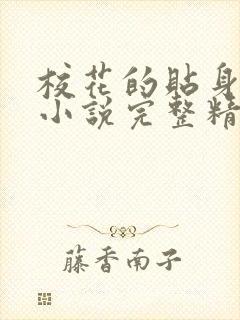 校花的貼身
小說完整精
藤香南子